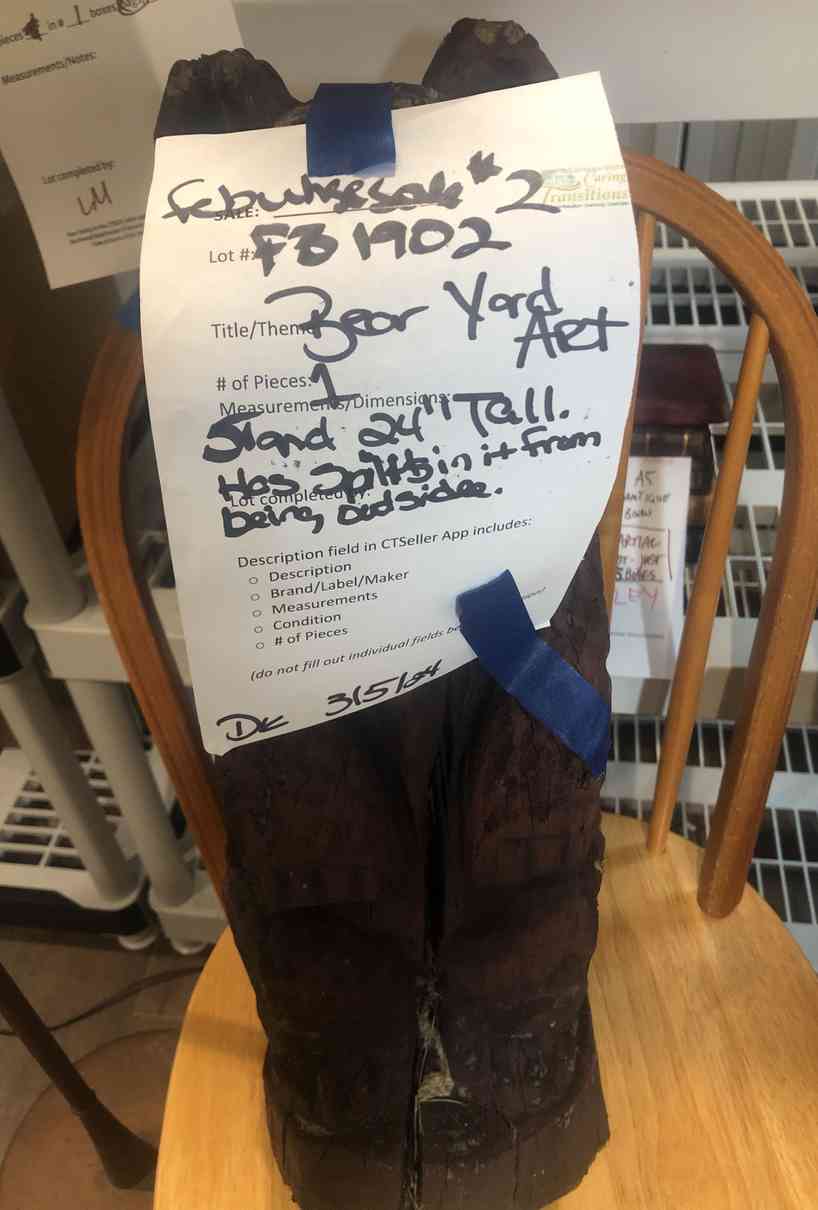 in a 1 boxes
Measurements/Notes:
Lot completed by:
LM
Caring
Transitions
SALE: #2
Lot #: FB 1902
Title/Theme Bear Yard
Art
# of Pieces: 1
Measurements/Dimensions:
Stand 24" Tall.
Has splits in it from
Lot completed by:
being outside.
Description field in CTSeller App includes:
○ Description
○ Brand/Label/Maker
○ Measurements
○ Condition
○ # of Pieces
(do not fill out individual fields
DK 3/5/24
A5